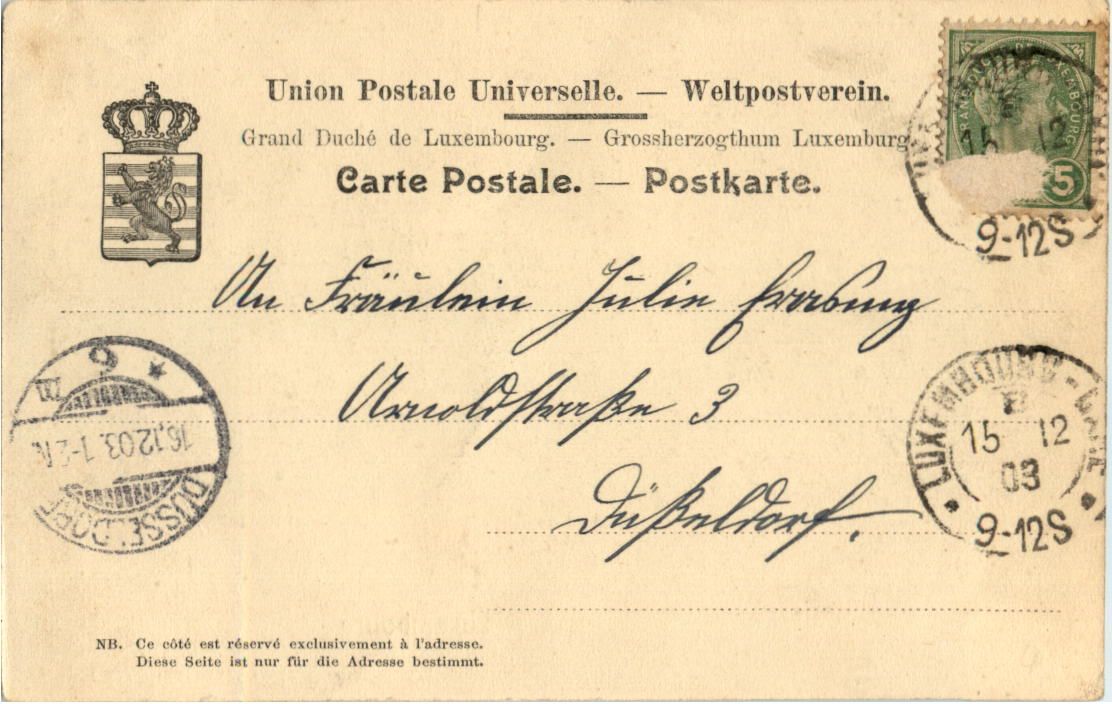 Union Postale Universelle. — Weltpostverein.
Grand Duché de Luxembourg. — Grossherzogthum Luxemburg
Carte Postale. — Postkarte.
5
15 12
9-12S
An Fräulein Julie Erasmy
Arnoldstraße 3
Düßeldorf.
LUXEMBOURG-GARE
15 12
03
9-12S
* 9 m
16.12.03. 1-2 N.
DÜSSELDORF
NB. Ce côté est réservé exclusivement à l'adresse.
Diese Seite ist nur für die Adresse bestimmt.